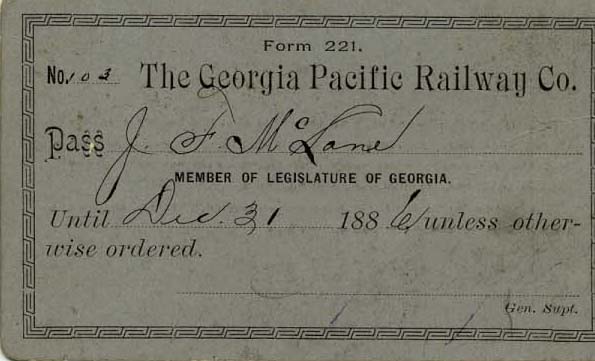 Form 221.
No. 103 The Georgia Pacific Railway Co.
Pass J. F. McLane
MEMBER OF LEGISLATURE OF GEORGIA.
Until Dec. 31 1886 unless other-
wise ordered.
Gen. Supt.